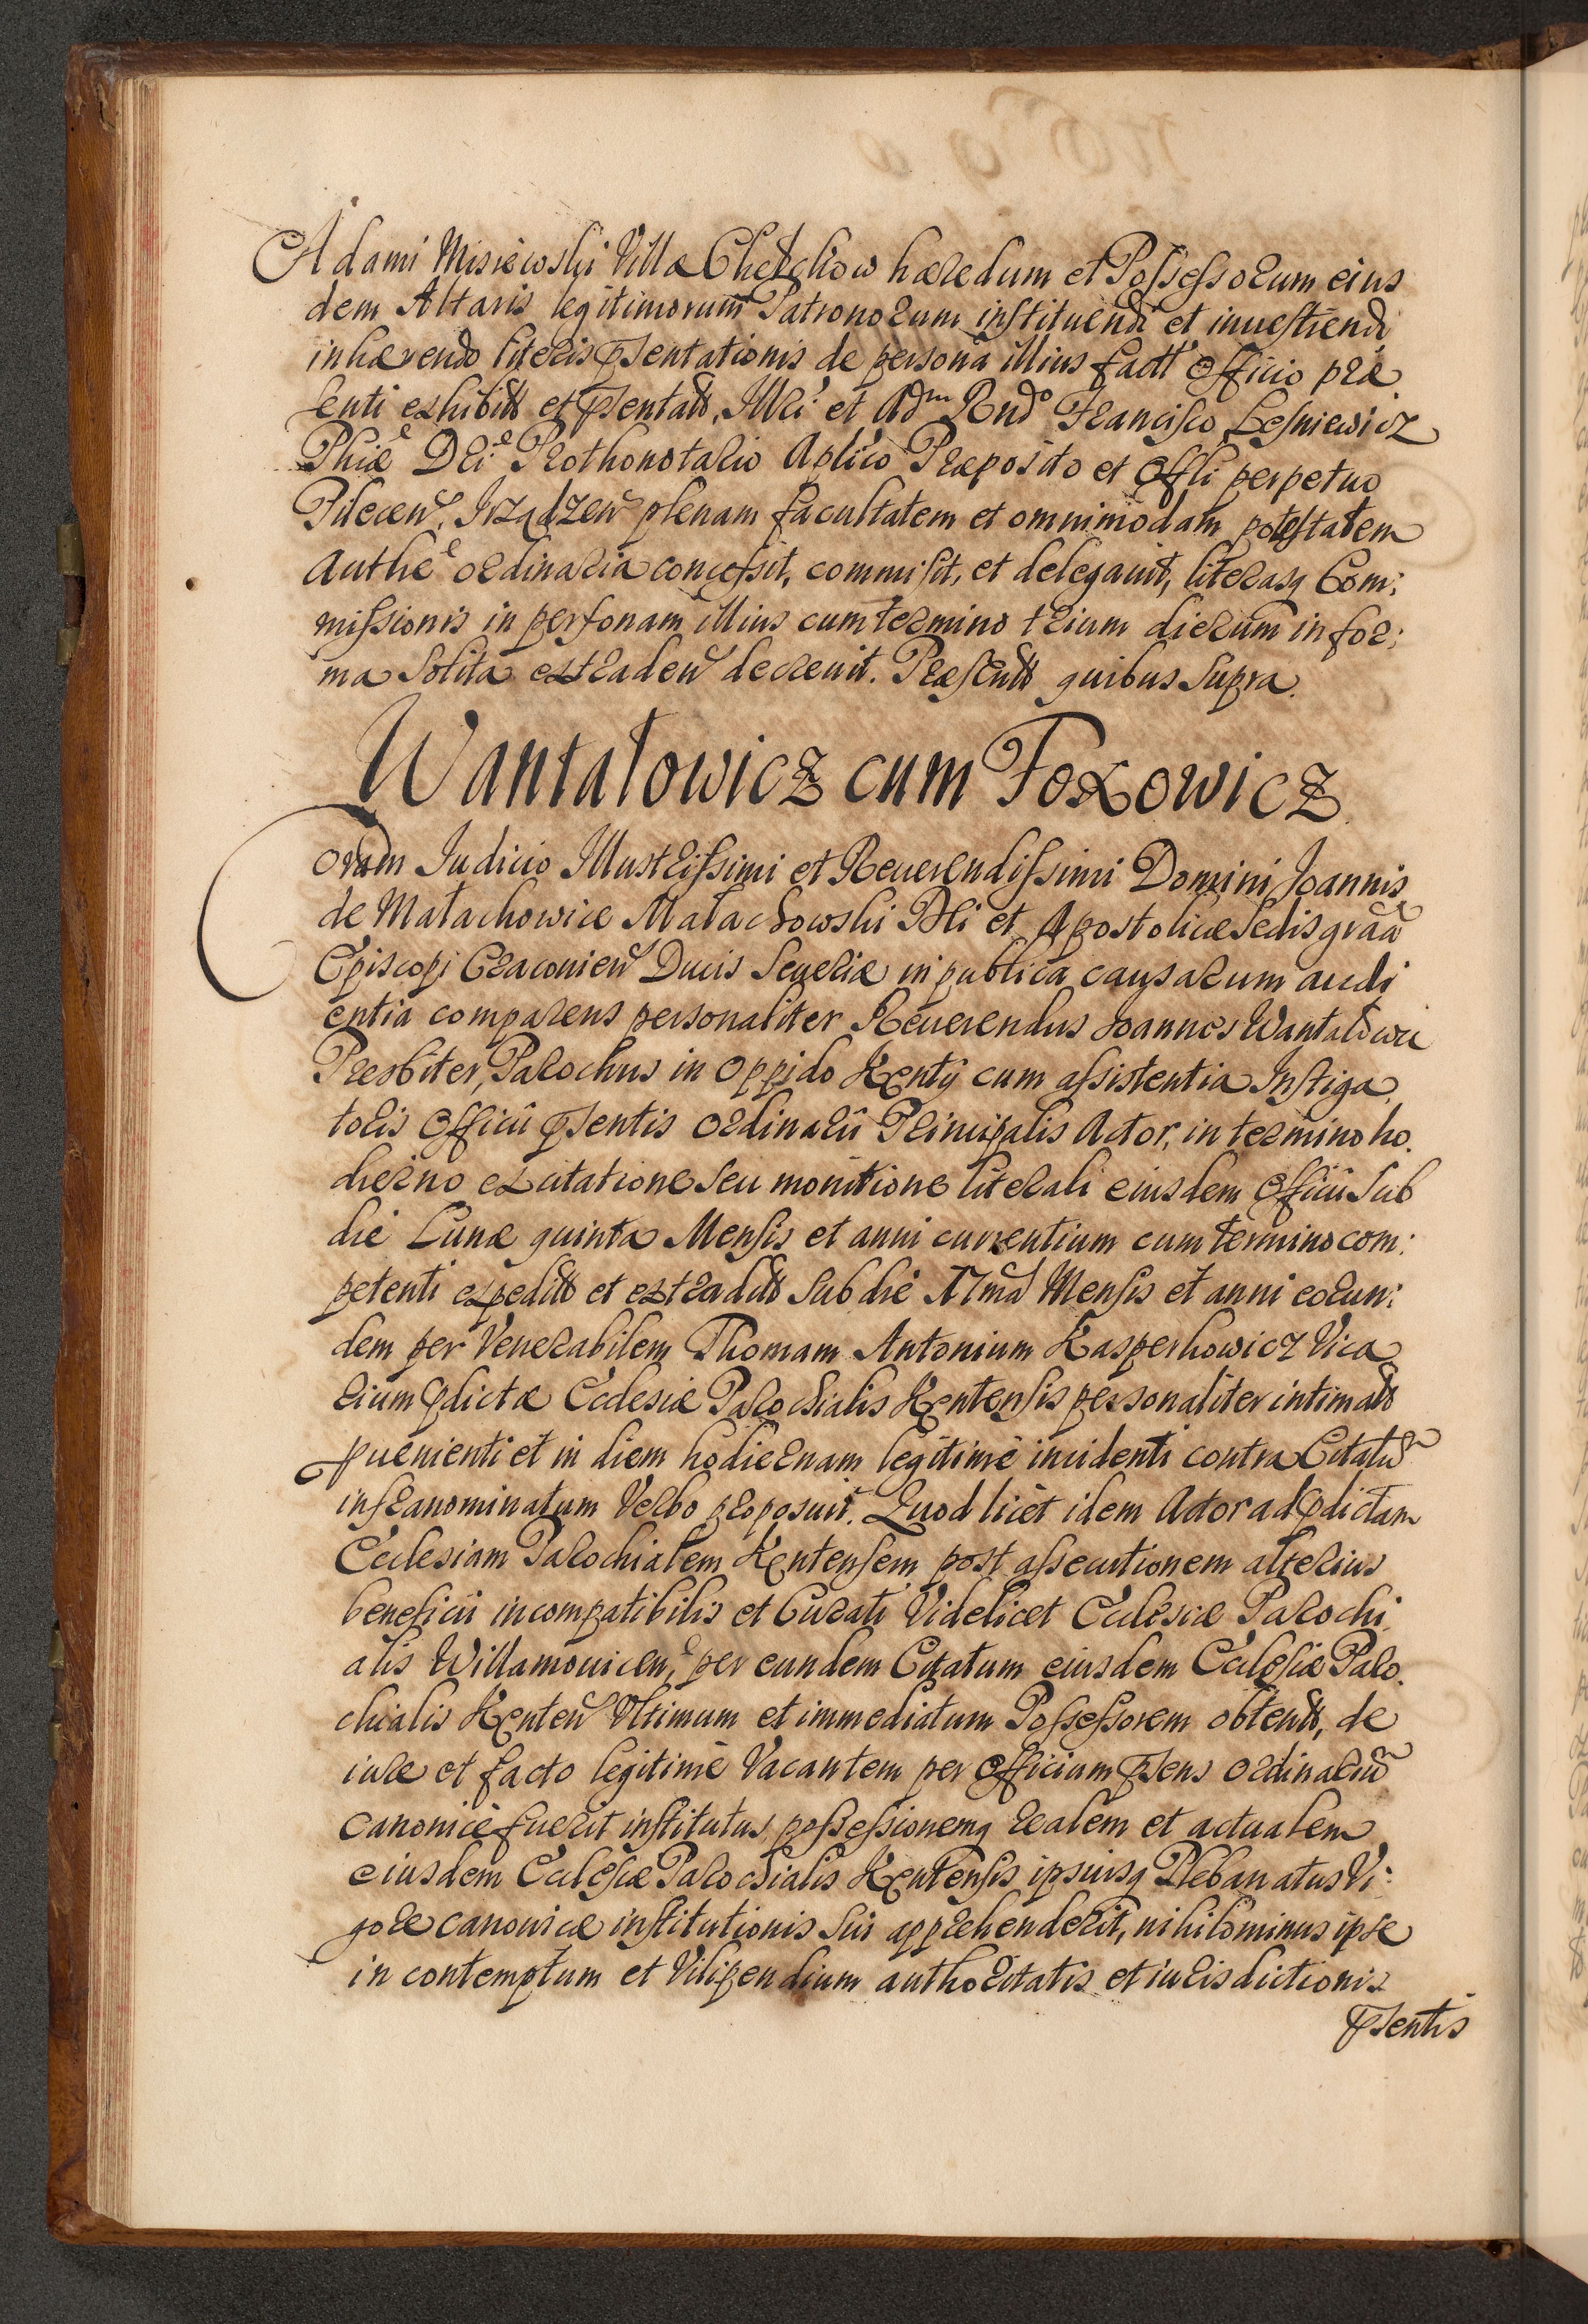 Adami Misiewski Villæ Chełchow hæredum et Possessorum eius
dem Altaris legitimorum Patronorum instituendi et inuestiendi
inhærendo literis pſentationis de persona illius factis Officio præ
senti exhibitis et pſentatis, Illri et Adm Rndo Francisco Lesniewicz
Phiæ Dri Prothonotario Aplico Præposito et Offli perpetuo
Pilecen, Irządzen plenam facultatem et omnimodam potestatem
Authe ordinaria concessit, commisit, et delegauit, literasq Com:
missionis in personam illius cum termino trium dierum in for:
ma solita extraden decreuit. Præsentibus quibus supra.
Wantałowicz cum Foxowicz.
Coram Iudicio Illustrissimi et Reuerendissimi Domini Joannis
de Małachowice Małachowski Dei et Apostolicæ Sedis graa
Episcopi Cracouien Ducis Seueriæ in publica causarum audi
entia comparens personaliter Reuerendus Joannes Wantałowic
Presbiter, Parochus in Oppido Kenty cum assistentia Instiga
toris Officii pſentis Ordinarii Principalis Actor, in termino ho
dierno ex citatione seu monitione literali eiusdem Officii sub
die Lunæ quinta Mensis et anni currentium cum termino com:
petenti expeditis et extraditis sub die 17ma Mensis et anni eorun:
dem per Venerabilem Thomam Antonium Kasperkowicz Vica
rium pdictæ Ecclesiæ Parochialis Kentensis personaliter intimatis
puenienti et in diem hodiernam legitime incidenti contra Citatum
infranominatum Verbo proposuit. Quod licet idem Actor ad pdictam
Ecclesiam Parochialem Kentensem post assecutionem alterius
beneficii incompatibilis et Curati Videlicet Ecclesiæ Parochi
alis Willamouicen, per eundem Citatum eiusdem Ecclesiæ Paro
chialis Kenten Vltimum et immediatum Possessorem obtentis, de
iure et facto legitime Vacantem per Officium pſens Ordinarium
canonice fuerit institutus, possessionemq realem et actualem
eiusdem Ecclesiæ Parochialis Kentensis ipsiusq Plebanatus Vi:
gore canonicæ institutionis sui apprehenderit, nihilominus ipse
in contemptum et Vilipendium authoritatis et iurisdictionis
pſentis